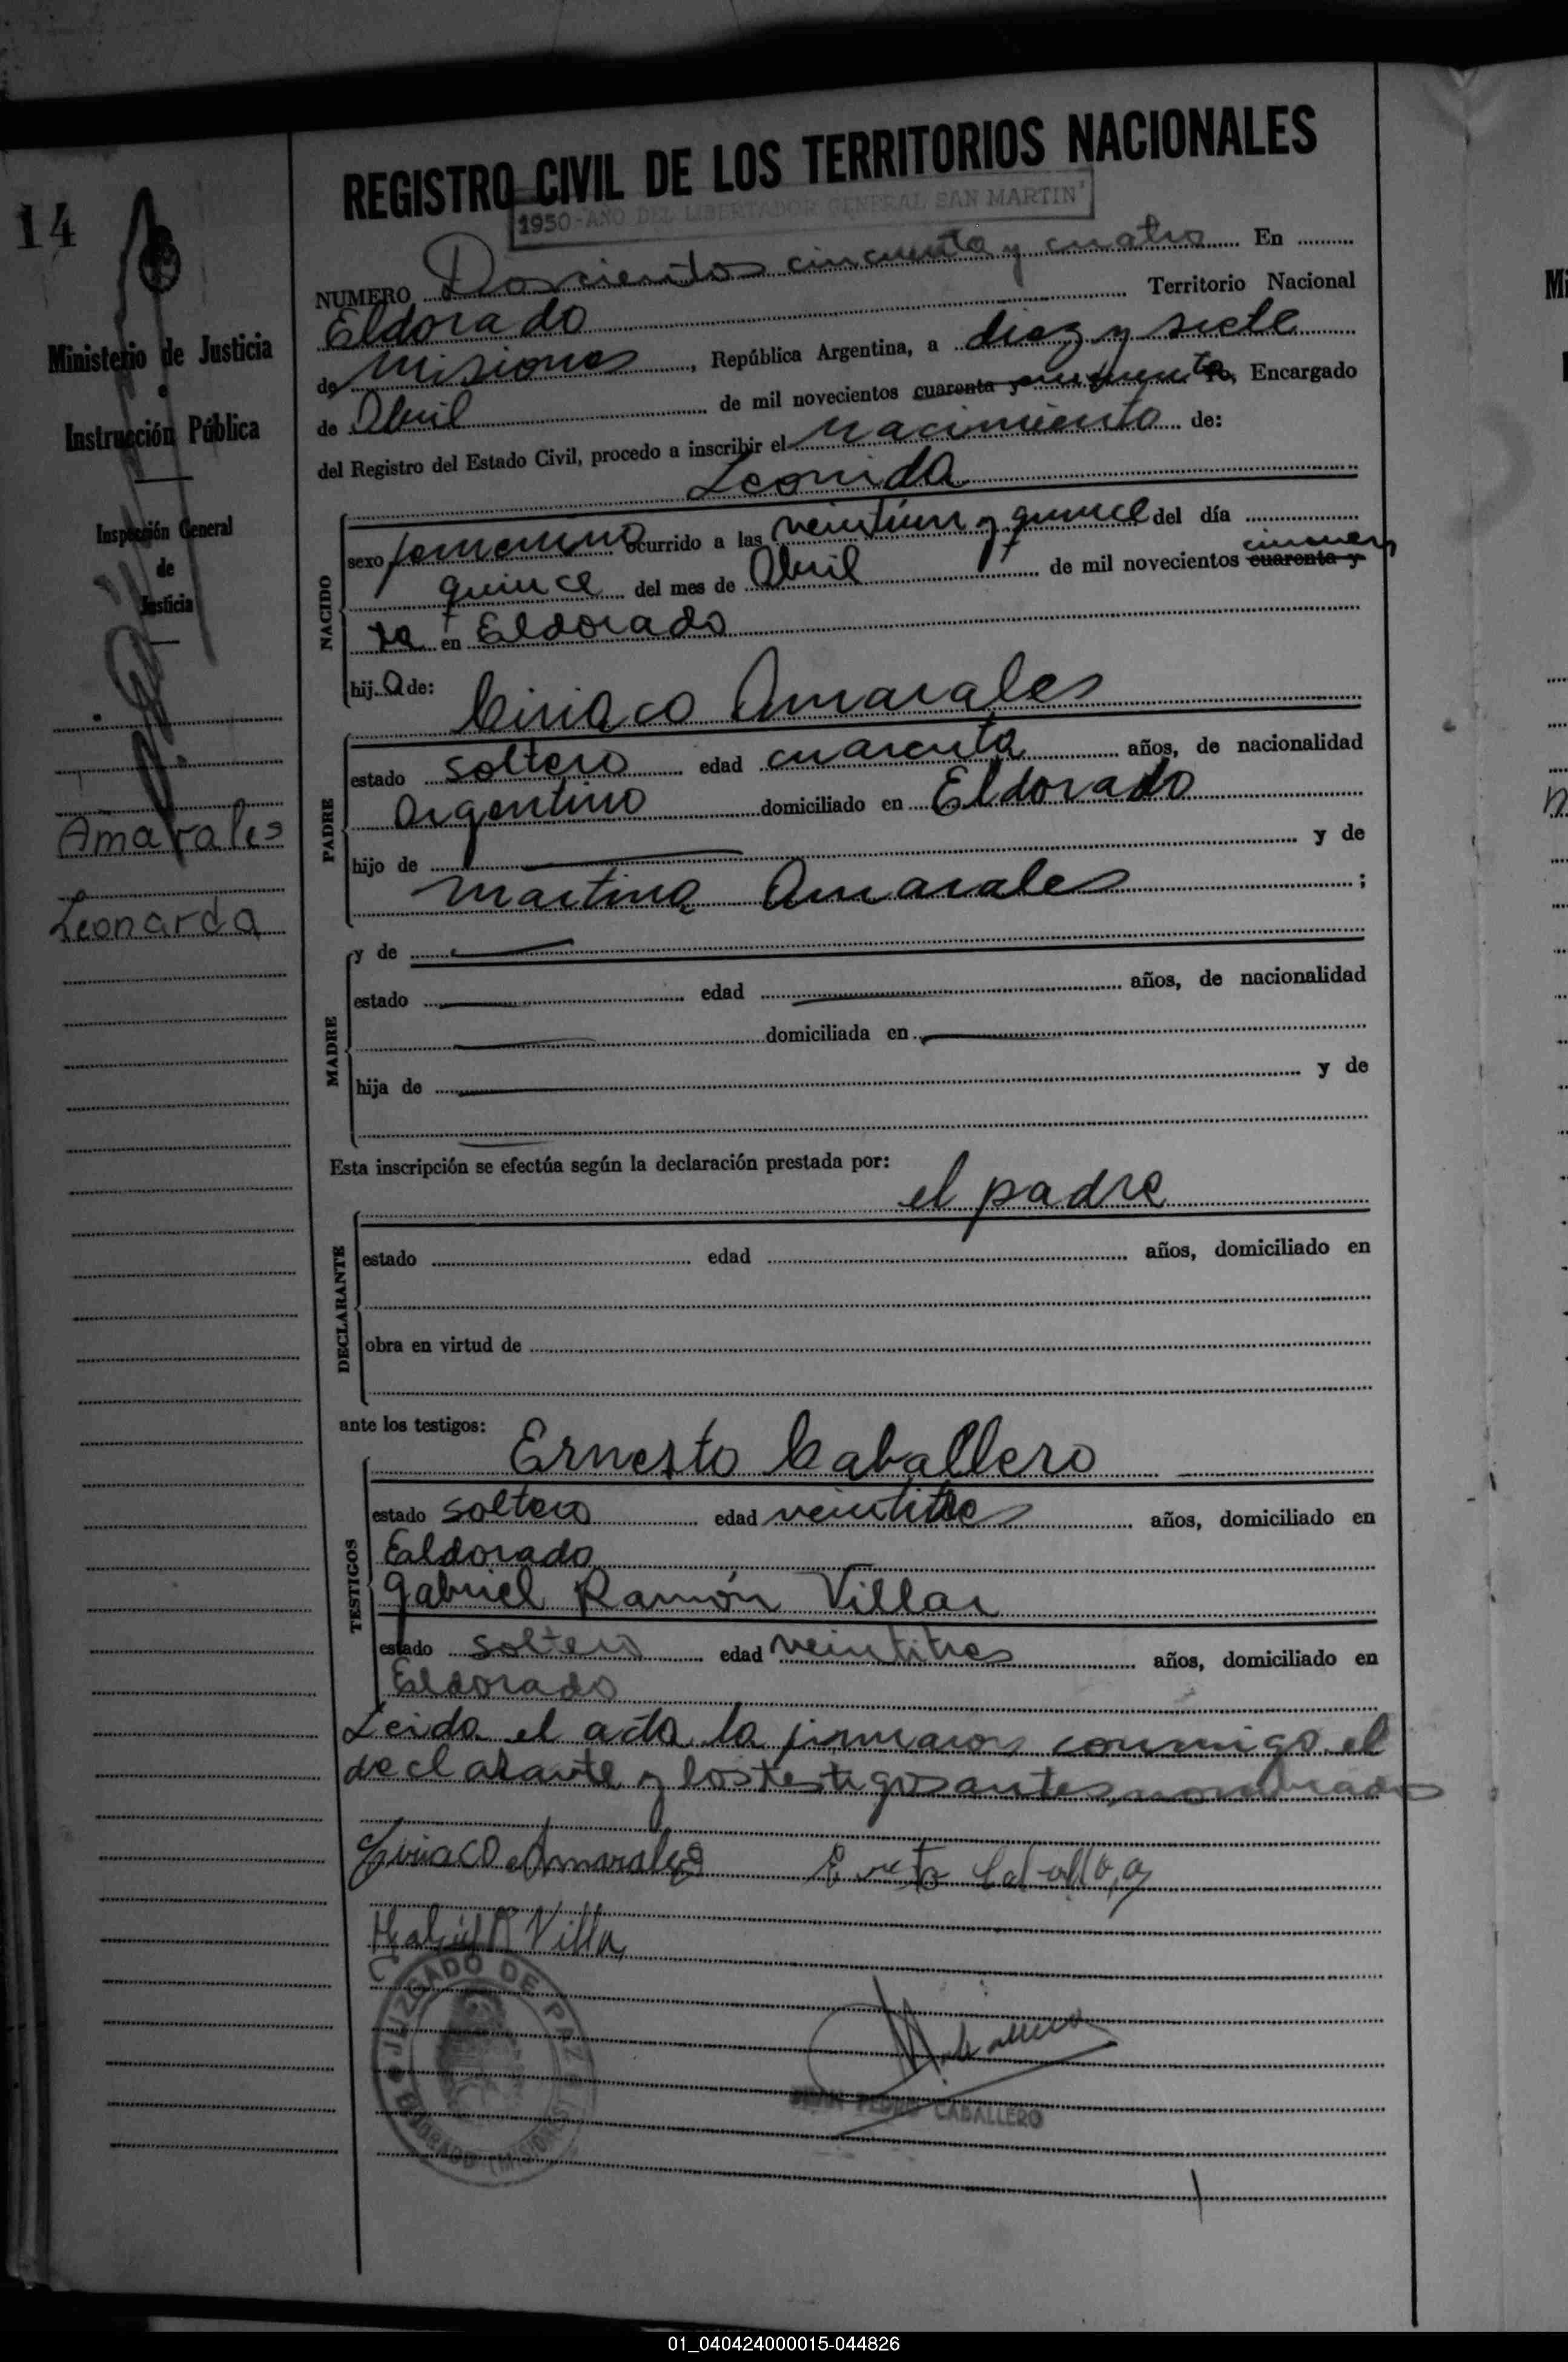 REGISTRO CIVIL DE LOS TERRITORIOS NACIONALES
1950-AÑO DEL LIBERTADOR GENERAL SAN MARTIN
14
NUMERO Doscientos cincuenta y cuatro En
Eldorado Territorio Nacional
de Misiones, República Argentina, a diez y siete
de Abril de mil novecientos cuarenta y cincuenta, Encargado
del Registro del Estado Civil, procedo a inscribir el Nacimiento de:
Leonida
Ministerio de Justicia
e
Instrucción Pública
Inspección General
de
Justicia
Amarales
Leonarda
NACIDO
sexo femenino ocurrido a las veintiun y quince del día
quince del mes de Abril de mil novecientos cuarenta y cincuen
ta en Eldorado
hija de:
Ciriaco Amarales
PADRE
estado soltero edad cuarenta años, de nacionalidad
Argentino domiciliado en Eldorado
hijo de y de
Martina Amarales ;
MADRE
y de
estado edad años, de nacionalidad
domiciliada en
hija de y de
Esta inscripción se efectúa según la declaración prestada por:
el padre
DECLARANTE
estado edad años, domiciliado en
obra en virtud de
ante los testigos:
Ernesto Caballero
TESTIGOS
estado soltero edad veintitres años, domiciliado en
Eldorado
Gabriel Ramón Villar
estado soltero edad veintitres años, domiciliado en
Eldorado
Leida el acta la firmaron conmigo el
declarante y los testigos antes nombrados
Ciriaco Amarales
Gabriel R Villa
JUZGADO DE PAZ
ELDORADO (MISIONES)
PEDRO CABALLERO
01_040424000015-044826